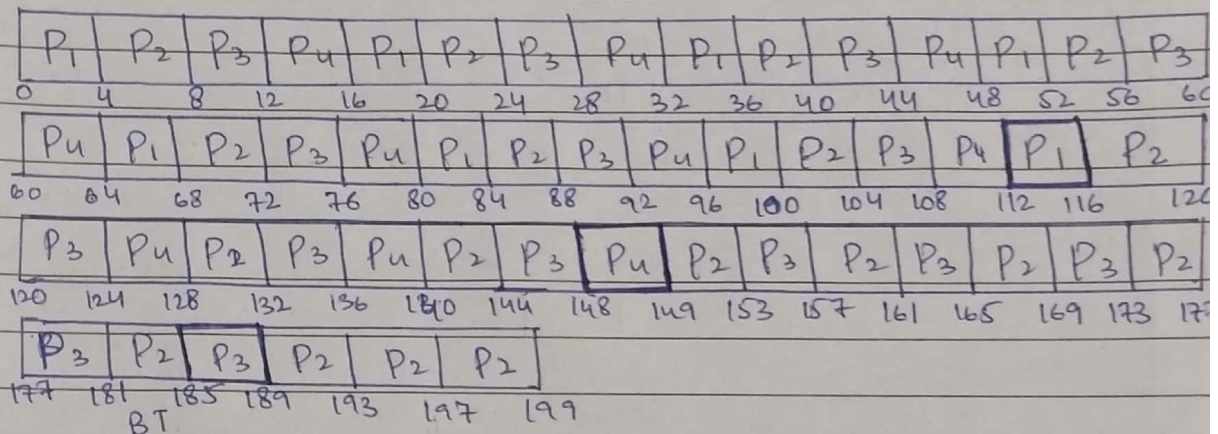 P1 P2 P3 P4 P1 P2 P3 P4 P1 P2 P3 P4 P1 P2 P3
0 4 8 12 16 20 24 28 32 36 40 44 48 52 56 60
P4 P1 P2 P3 P4 P1 P2 P3 P4 P1 P2 P3 P4 P1 P2
60 64 68 72 76 80 84 88 92 96 100 104 108 112 116 120
P3 P4 P2 P3 P4 P2 P3 P4 P2 P3 P2 P3 P2 P3 P2
120 124 128 132 136 140 144 148 149 153 157 161 165 169 173 177
P3 P2 P3 P2 P2 P2
177 181 185 189 193 197 199
BT